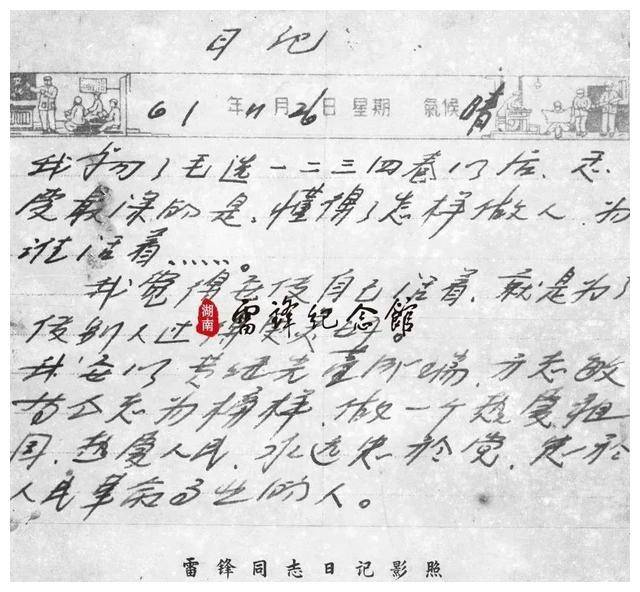 日记
61 年 11 月 26 日 星期 氣候 晴
我学习了毛选一二三四卷以后、感
受最深的是、懂得了怎样做人、为
谁活着……。
我觉得要使自己活着、就是为了
湖南 雷锋纪念館
使别人过得更美好。
我要以黄继光董存瑞、方志敏
等同志为榜样、做一个热爱祖
国、热爱人民、永远忠於党、忠於
人民革命事业的人。
雷锋同志日记影照